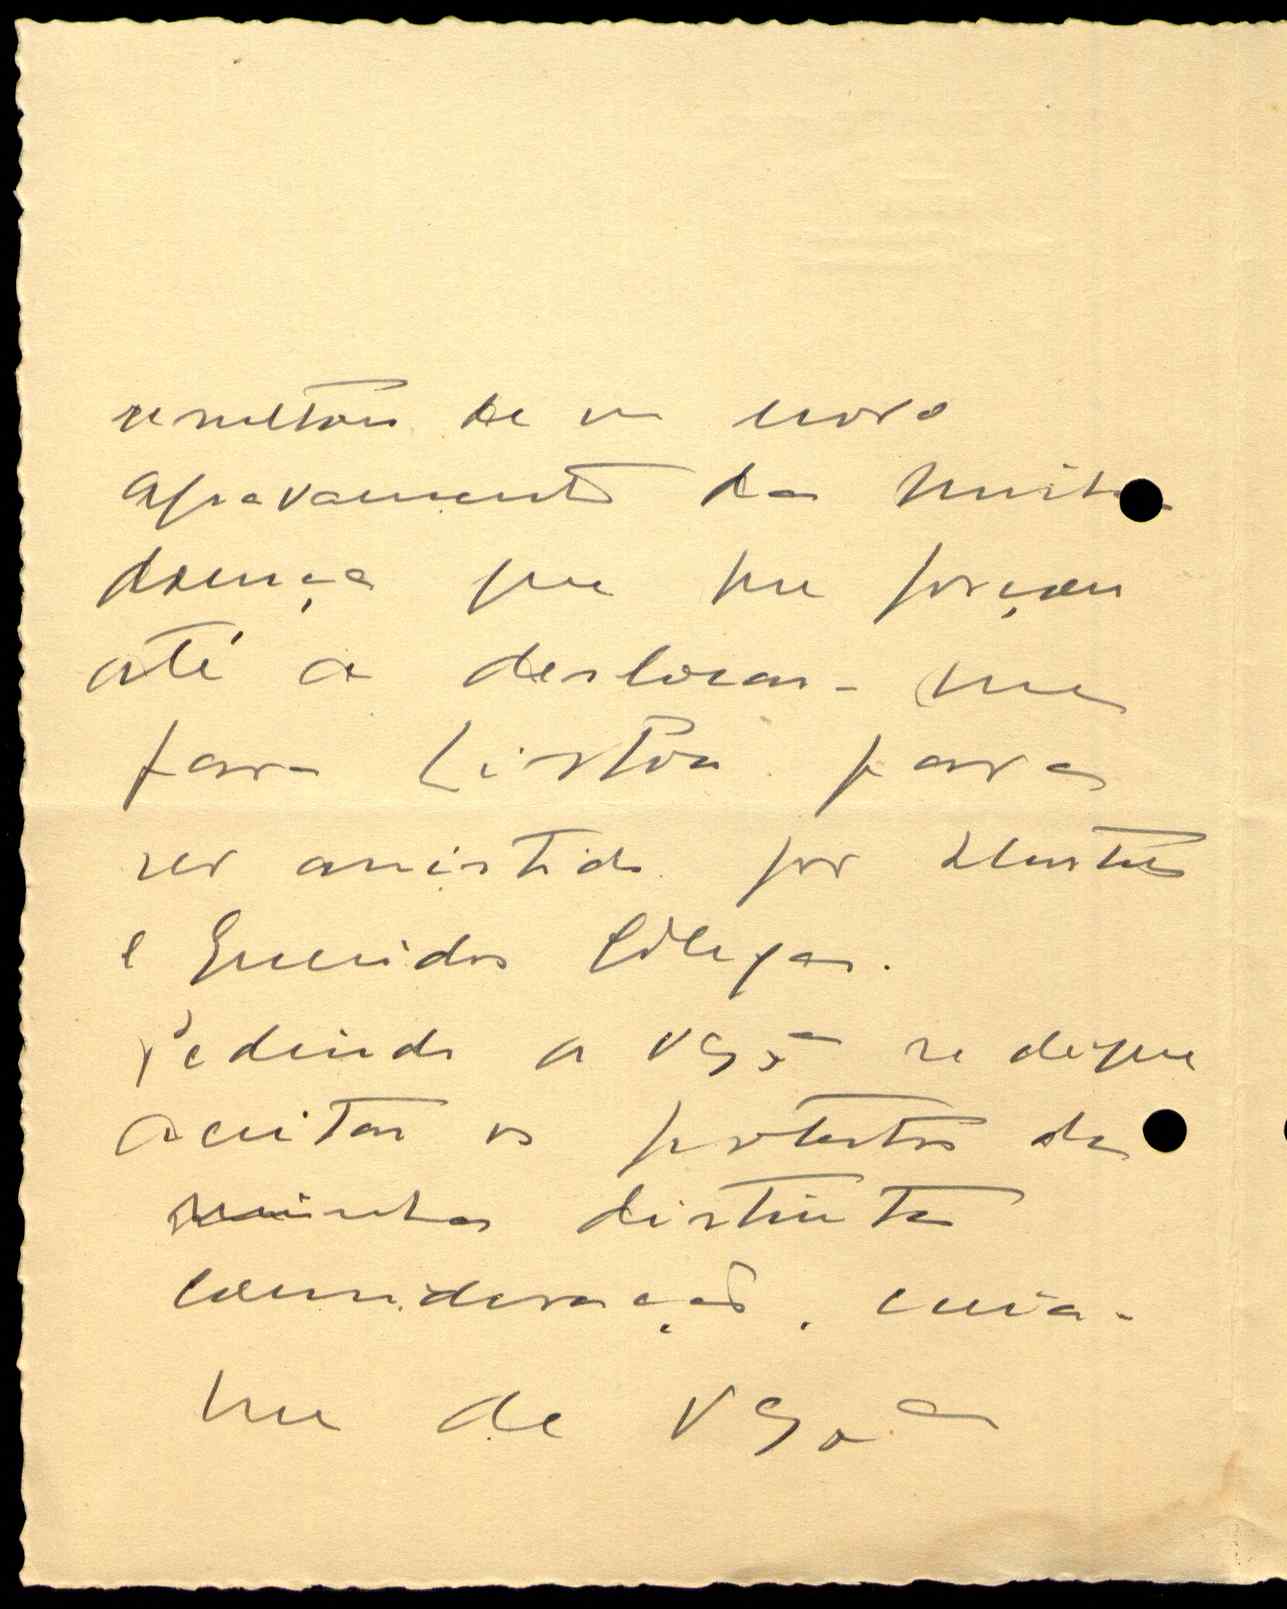 resultou de um novo
agravamento da minha
doença que me forçou
até a deslocar-me
para Lisboa para
ser assistido por ilustres
e Queridos Colegas.
Pedindo a V Exª se digne
aceitar os protestos da
minha distinta
consideração, creia-
me de V Exª